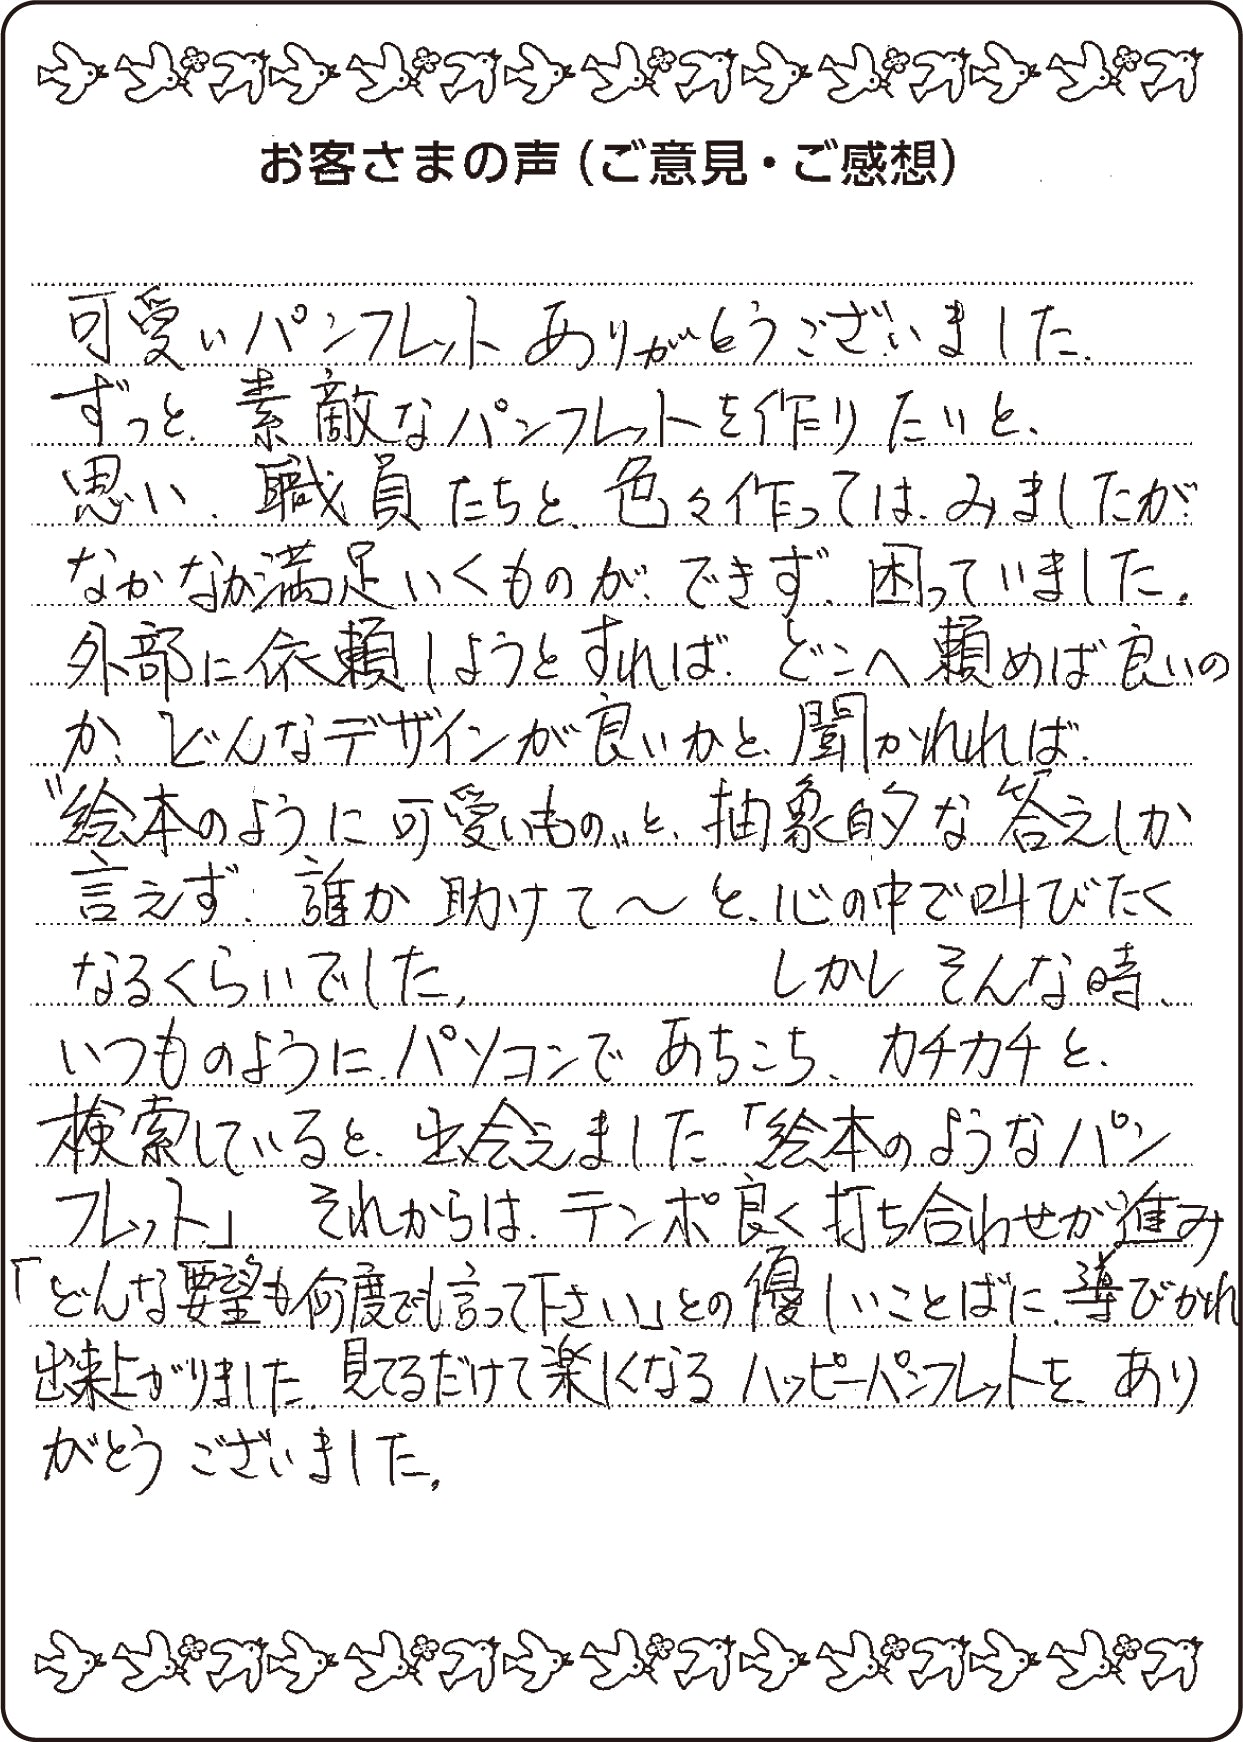 お客さまの声(ご意見・ご感想)
可愛いパンフレットありがとうございました。
ずっと、素敵なパンフレットを作りたいと、
思い、職員たちと、色々作っては、みましたが
なかなか満足いくものが、できず、困っていました。
外部に依頼しようとすれば、どこへ頼めば良いの
か、どんなデザインが良いかと、聞かれれば、
"絵本のように可愛いもの"と、抽象的な答えしか
言えず、誰か助けて〜と、心の中で叫びたく
なるくらいでした。 しかしそんな時、
いつものように、パソコンであちこち、カチカチと、
検索していると、出会えました「絵本のようなパン
フレット」 それからは、テンポ良く打ち合わせが進み
「どんな要望も何度でも言って下さい」との優しいことばに、導びかれ
出来上がりました。見てるだけで楽しくなるハッピーパンフレットを、あり
がとうございました。